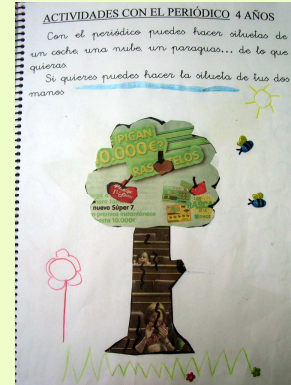 ACTIVIDADES CON EL PERIÓDICO 4 AÑOS
Con el periódico puedes hacer siluetas de
un coche, una nube, un paraguas... de lo que
quieras.
Si quieres puedes hacer la silueta de tus dos
manos
¿PICAN
10.000€?
RASCATELOS
nuevo Súper 7.